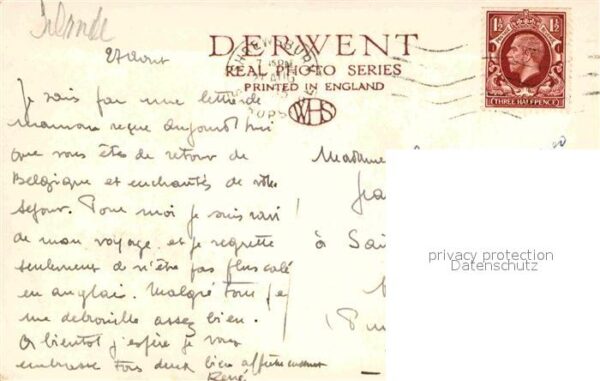 Irlande
27 Aout
DERWENT
REAL PHOTO SERIES
PRINTED IN ENGLAND
WHS
SHREWSBURY
1½ 1½
THREE HALFPENCE
Je sais par une lettre de
maman reçue aujourd'hui
que vous êtes de retour de
Belgique et enchantés de votre
sejour. Pour moi je suis ravi
de mon voyage et je regrette
seulement de n'être pas plus calé
en anglais. Malgré tout je
me debrouille assez bien.
A bientot j'espère je vous
embrasse tous deux bien affectueusement
René
Madame
à Sai
privacy protection
Datenschutz